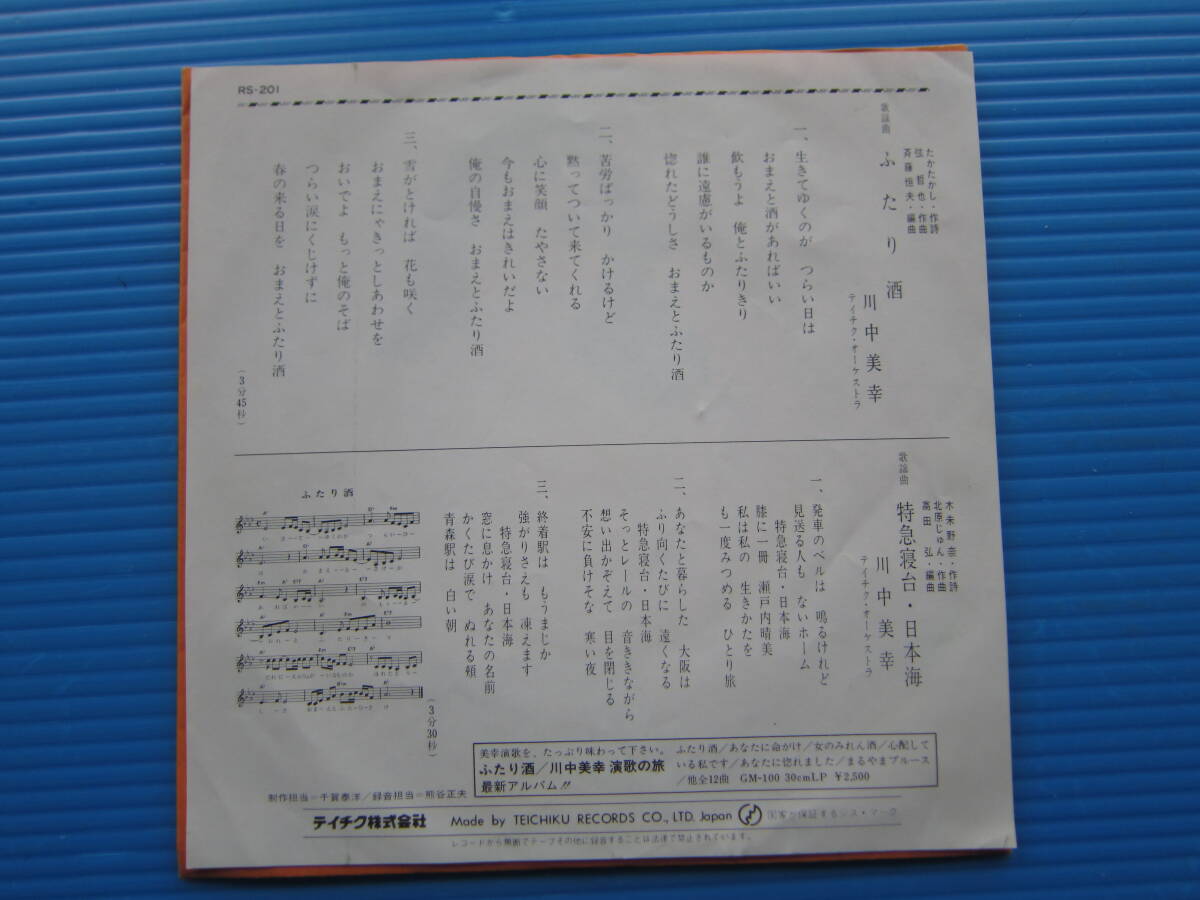 RS-201
歌謡曲
ふたり酒
たかたかし・作詩
弦 哲也・作曲
斉藤恒夫・編曲
川中美幸
テイチク・オーケストラ
一、生きてゆくのが つらい日は
おまえと酒があればいい
飲もうよ 俺とふたりきり
誰に遠慮がいるものか
惚れたどうしさ おまえとふたり酒
二、苦労ばっかり かけるけど
黙ってついて来てくれる
心に笑顔 たやさない
今もおまえはきれいだよ
俺の自慢さ おまえとふたり酒
三、雪がとければ 花も咲く
おまえにゃきっとしあわせを
おいでよ もっと俺のそば
つらい涙にくじけずに
春の来る日を おまえとふたり酒
(3分45秒)
歌謡曲
特急寝台・日本海
木未野奈・作詩
北原じゅん・作曲
高田 弘・編曲
川中美幸
テイチク・オーケストラ
一、発車のベルは 鳴るけれど
見送る人も ないホーム
特急寝台・日本海
膝に一冊 瀬戸内晴美
私は私の 生きかたを
も一度みつめる ひとり旅
二、あなたと暮らした 大阪は
ふり向くたびに 遠くなる
特急寝台・日本海
そっとレールの 音ききながら
想い出かぞえて 目を閉じる
不安に負けそな 寒い夜
三、終着駅は もうまじか
強がりさえも 凍えます
特急寝台・日本海
窓に息かけ あなたの名前
かくたび涙で ぬれる頬
青森駅は 白い朝
(3分30秒)
ふたり酒
美幸演歌を、たっぷり味わって下さい。
ふたり酒/川中美幸 演歌の旅
最新アルバム!!
ふたり酒/あなたに命がけ/女のみれん酒/心配して
いる私です/あなたに惚れました/まるやまブルース
/他全12曲 GM-100 30cmLP ¥2,500
制作担当=千賀泰洋/録音担当=熊谷正夫
テイチク株式会社 Made by TEICHIKU RECORDS CO., LTD. Japan 国家が保証するジス・マーク
レコードから無断でテープその他に録音することは法律で禁止されています。